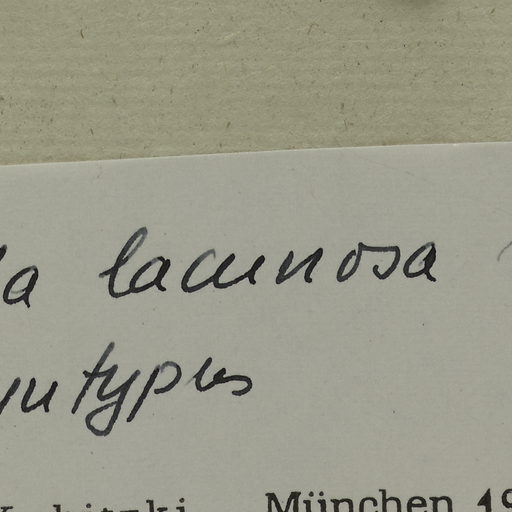 la lacunosa
yntypus
Kubitzki München 19